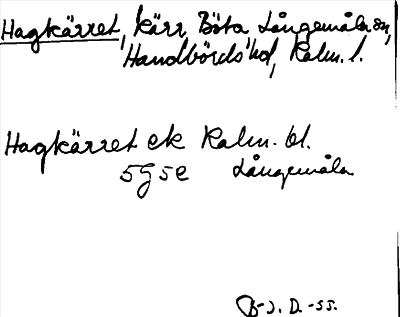 Hagkärret, kärr, Böta, Långemåla sn,
Handbörds hd, Kalm. l.
Hagkärret ek Kalm. bl.
5G5e Långemåla
B-J. D. -55.